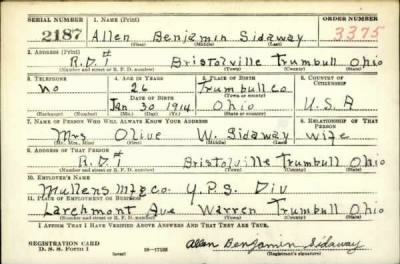 SERIAL NUMBER 1. NAME (Print) ORDER NUMBER
2187 Allen Benjamin Sidaway 3375
(First) (Middle) (Last)
2. ADDRESS (Print)
R.D.1 Bristolville Trumbull Ohio
(Number and street or R. F. D. number) (Town) (County) (State)
3. TELEPHONE 4. AGE IN YEARS 5. PLACE OF BIRTH 6. COUNTRY OF CITIZENSHIP
No 26 Trumbull Co.
(Town or county)
DATE OF BIRTH
Jan 30 1914 Ohio U.S.A
(Mo.) (Day) (Yr.) (State or country)
7. NAME OF PERSON WHO WILL ALWAYS KNOW YOUR ADDRESS 8. RELATIONSHIP OF THAT PERSON
Mrs Olive W. Sidaway wife
(Mr., Mrs., Miss) (First) (Middle) (Last)
9. ADDRESS OF THAT PERSON
R.D.1 Bristolville Trumbull Ohio
(Number and street or R. F. D. number) (Town) (County) (State)
10. EMPLOYER'S NAME
Mullens Mfg Co. Y.P.S. Div
11. PLACE OF EMPLOYMENT OR BUSINESS
Larchmont Ave Warren Trumbull Ohio
(Number and street or R. F. D. number) (Town) (County) (State)
I AFFIRM THAT I HAVE VERIFIED ABOVE ANSWERS AND THAT THEY ARE TRUE.
REGISTRATION CARD
D. S. S. Form 1 (over) Allen Benjamin Sidaway
(Registrant's signature)